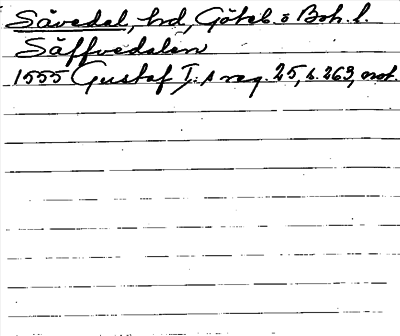 Sävedal, hd, Göteb. o Boh. l.
Säffvedalen
1555 Gustaf I:s reg. 25, s. 263, avt.